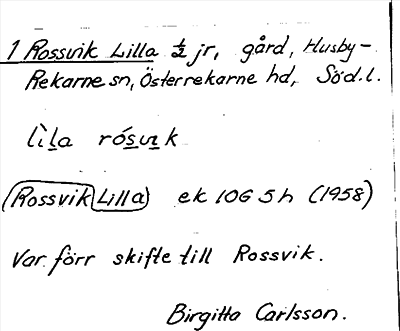 1 Rossvik Lilla ½ jr, gård, Husby-
Rekarne sn, Österrekarne hd, Söd.l.
lìla rósvɩk
(Rossvik Lilla) ek 10G 5h (1958)
Var förr skifte till Rossvik.
Birgitta Carlsson.